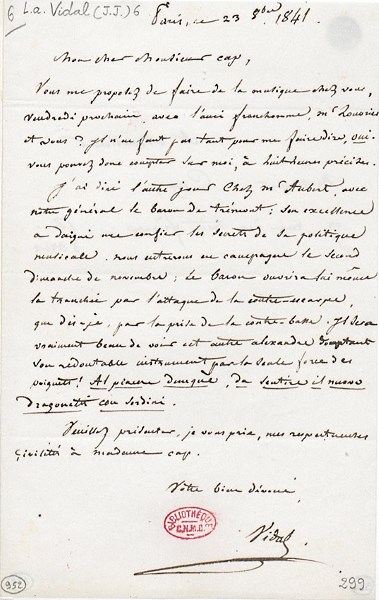 6 L.a. Vidal (J.J.) 6
Paris, ce 23 8bre 1841
Mon cher Monsieur Cap,
Vous me proposez de faire de la musique chez vous,
vendredi prochain, avec l'ami franchomme, Mr
et vous? Il n'en faut pas tant pour me faire dire, oui.
vous pouvez donc compter sur moi, à huit heures précises.
J'ai diné l'autre jour chez Mr Aubert, avec
notre général le baron de Trémont; son excellence
a daigné me confier les secrets de sa politique
musicale. nous entrerons en campagne le second
dimanche de novembre; Le baron ouvrira lui même
la tranchée par l'attaque de la contre-escarpe,
que dis-je, par la prise de la contre-basse. Il sera
vraiment beau de voir cet autre alexandre domptant
son redoutable instrument par la seule force des
poignets! Al piacer dunque, da sentire il nuovo
dragonetti con sordini.
Veuillez présenter, je vous prie, mes respectueuses
civilités à madame Cap.
Votre bien dévoué
Vidal
BIBLIOTHÈQUE
C.N.M.D.
952
299